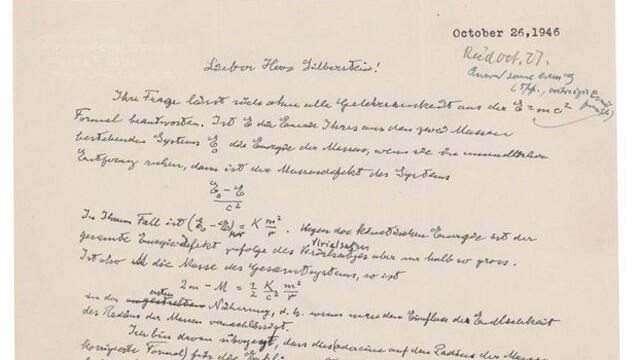 October 26, 1946
Reçd oct. 27.
Answd same evening
Lieber Herr Silberstein!
Ihre Frage lässt sich ohne alle Gelehrsamkeit aus der E = mc²
Formel beantworten. Ist E die Energie Ihres aus den zwei Massen
bestehenden Systems E₀ die Energie der Massen, wenn sie in unendlicher
Entfernung ruhen, dann ist der Massendefekt des Systems
E₀ − E
c²
In Ihrem Fall ist (E₀ − E) = K m²/r. Wegen der kinetischen Energie ist der
Virialsatzes
gesamte Energie-Defekt zufolge des aber nur halb so gross.
Ist also M die Masse des Gesamtsystems, so ist
2m − M = 1/2 K/c² m²/r
in der ersten Näherung, d. h. wenn man den Einfluss der Endlichkeit
des Radius der Massen vernachlässigt.
Ich bin davon überzeugt, dass die auf den Radius der Massen
korrigierte Formel) für das